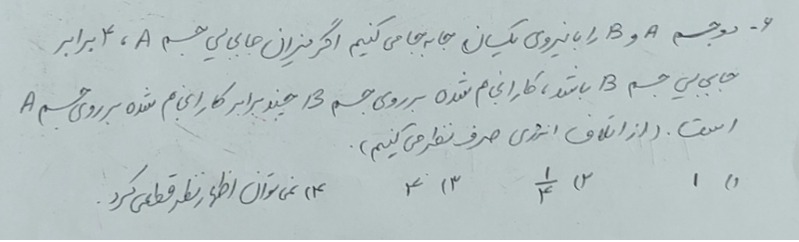 ۶- دو جسم A و B را با نیروی یکسان جابه‌جا می‌کنیم اگر میزان جابجایی جسم A ، ۴ برابر
جابجایی جسم B باشد، کار انجام شده بر روی جسم B چند برابر کار انجام شده بر روی جسم A
است. (از اتلاف انرژی صرف نظر می‌کنیم).
۱) ۱ ۲) ۱/۴ ۳) ۴ ۴) نمی‌توان اظهار نظر قطعی کرد.